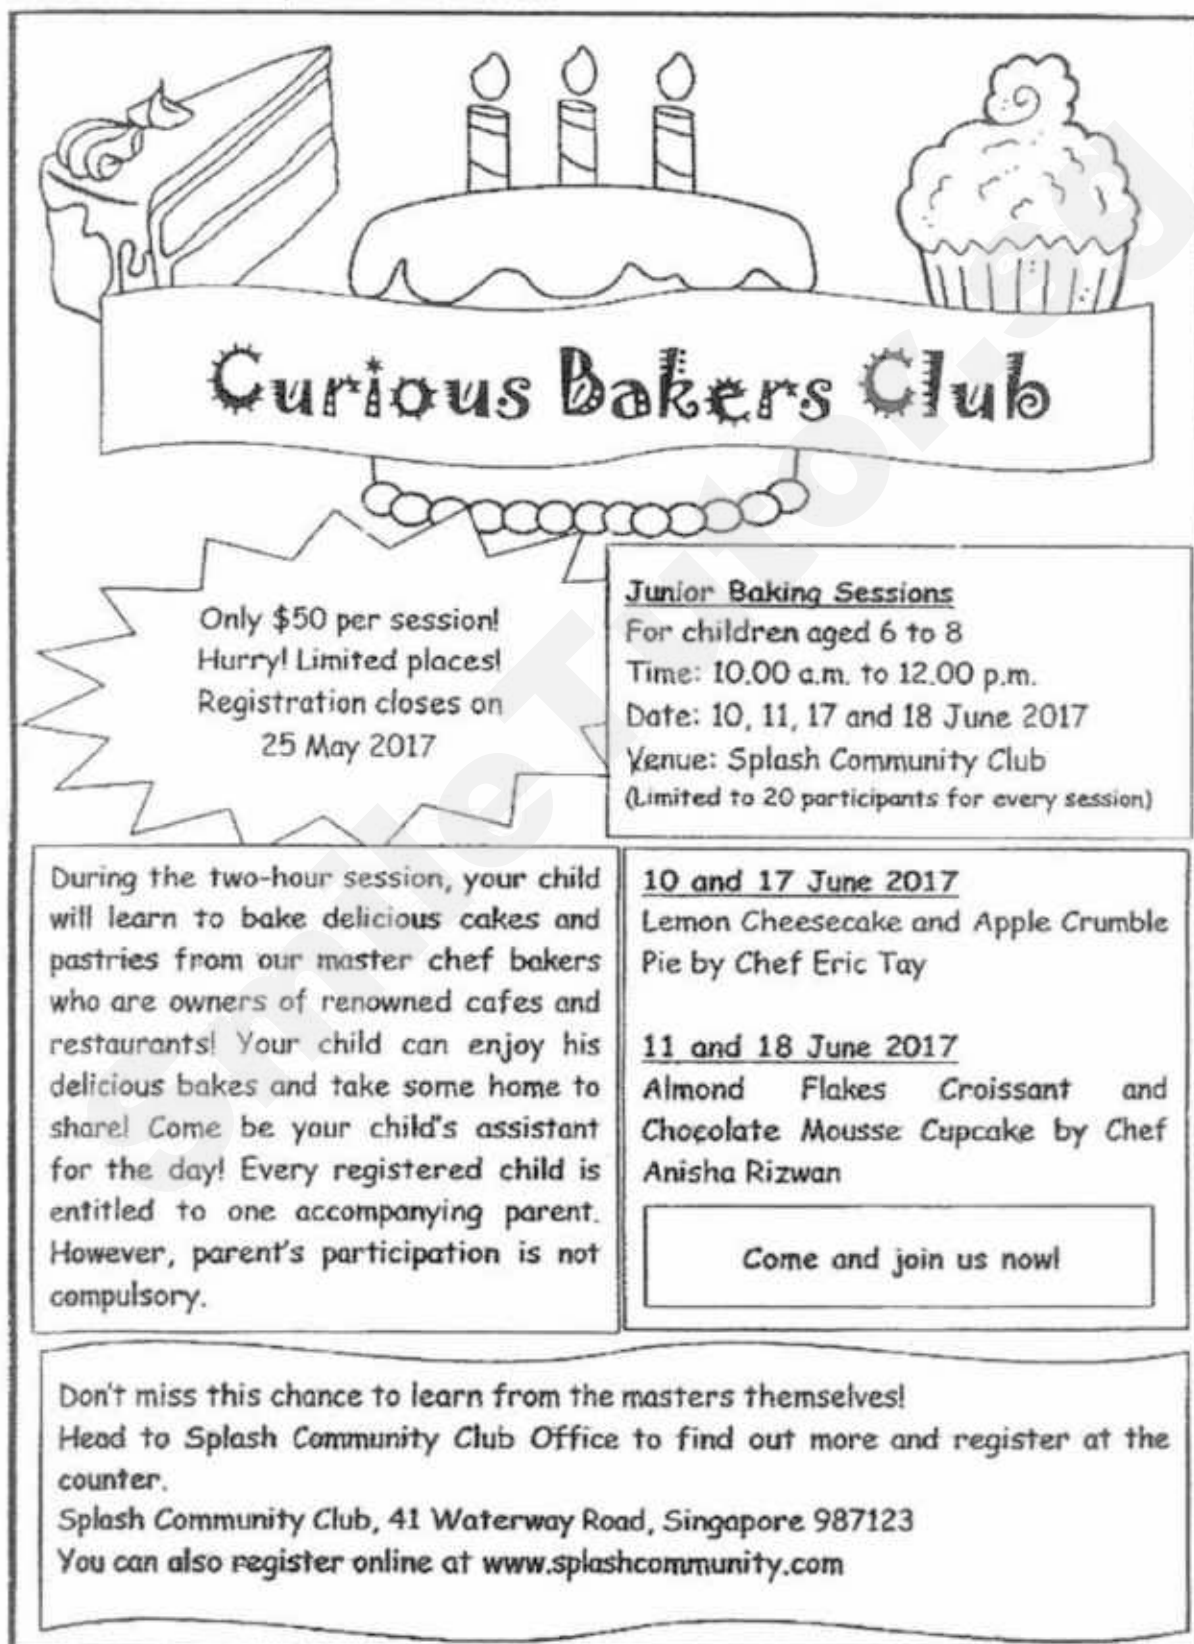 Curious Bakers Club
Only $50 per session!
Hurry! Limited places!
Registration closes on
25 May 2017
Junior Baking Sessions
For children aged 6 to 8
Time: 10.00 a.m. to 12.00 p.m.
Date: 10, 11, 17 and 18 June 2017
Venue: Splash Community Club
(Limited to 20 participants for every session)
During the two-hour session, your child
will learn to bake delicious cakes and
pastries from our master chef bakers
who are owners of renowned cafes and
restaurants! Your child can enjoy his
delicious bakes and take some home to
share! Come be your child's assistant
for the day! Every registered child is
entitled to one accompanying parent.
However, parent's participation is not
compulsory.
10 and 17 June 2017
Lemon Cheesecake and Apple Crumble
Pie by Chef Eric Tay
11 and 18 June 2017
Almond Flakes Croissant and
Chocolate Mousse Cupcake by Chef
Anisha Rizwan
Come and join us now!
Don't miss this chance to learn from the masters themselves!
Head to Splash Community Club Office to find out more and register at the
counter.
Splash Community Club, 41 Waterway Road, Singapore 987123
You can also register online at www.splashcommunity.com
SmileTutor.sg